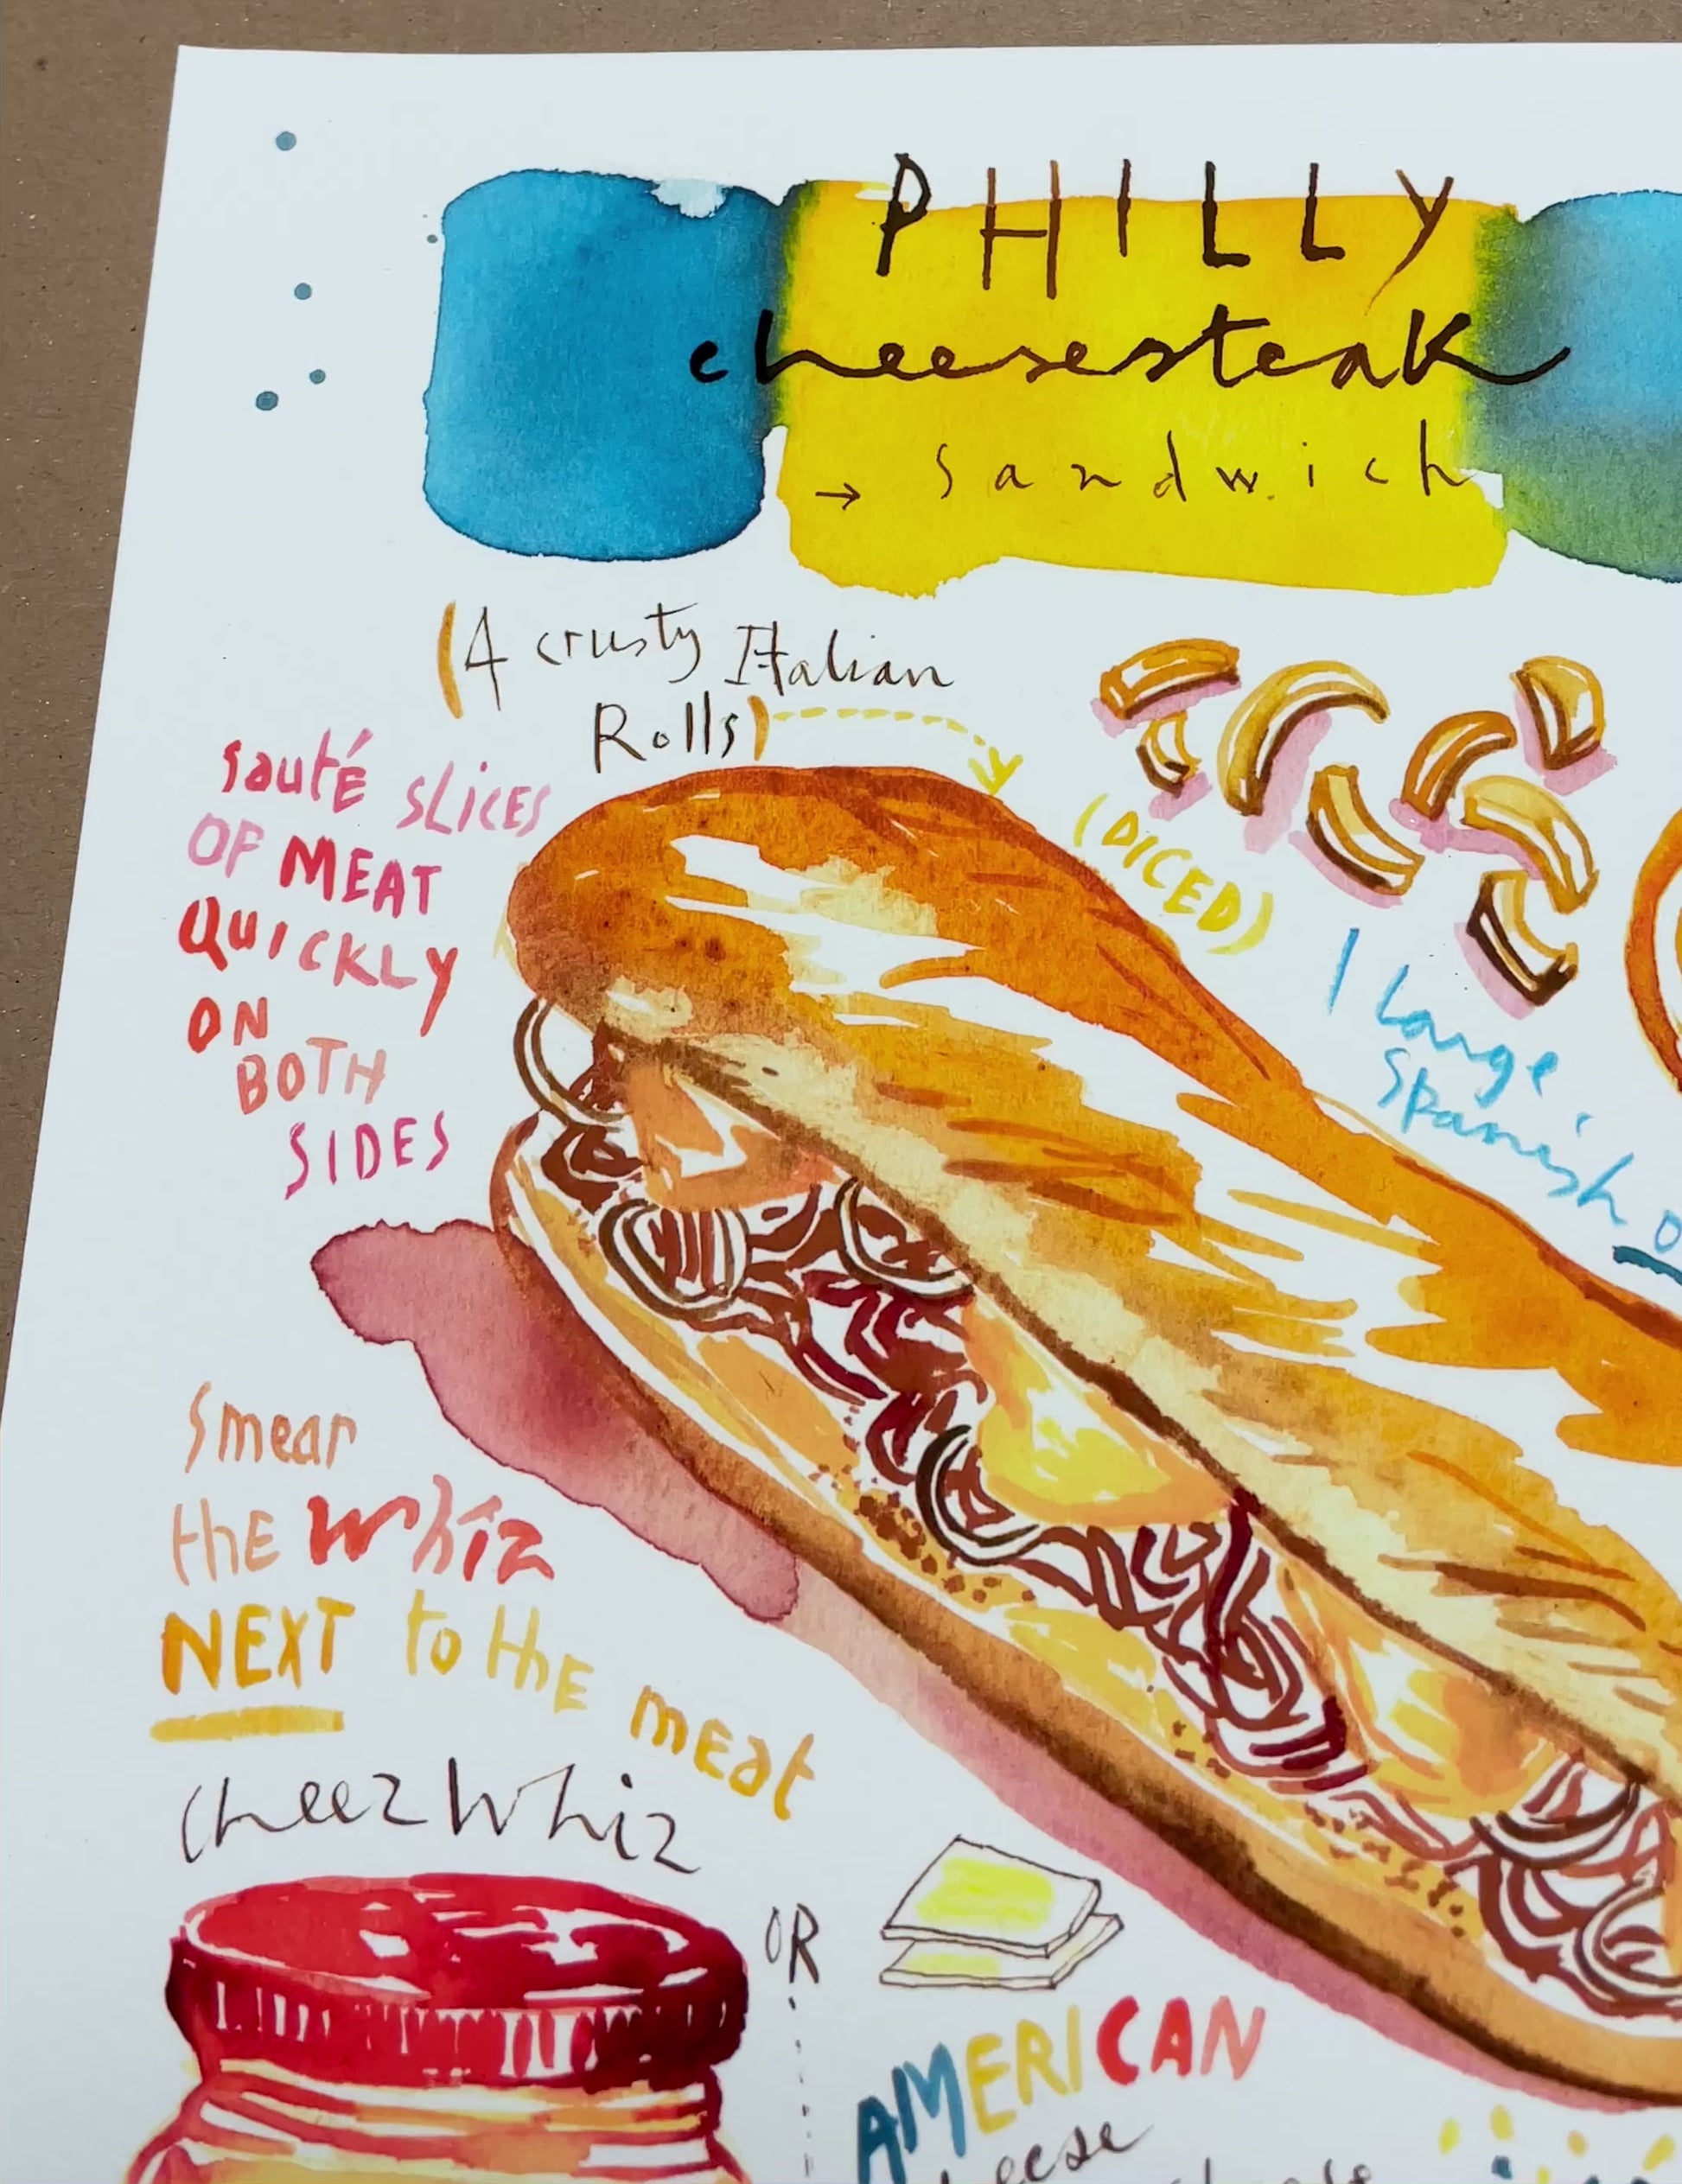 PHILLY
cheesesteak
→ sandwich
(4 crusty Italian
Rolls)
sauté slices
OF MEAT
QUICKLY
ON
BOTH
SIDES
(DICED)
1 large
Spanish
Smear
the whiz
NEXT to the meat
cheez Whiz
OR
AMERICAN